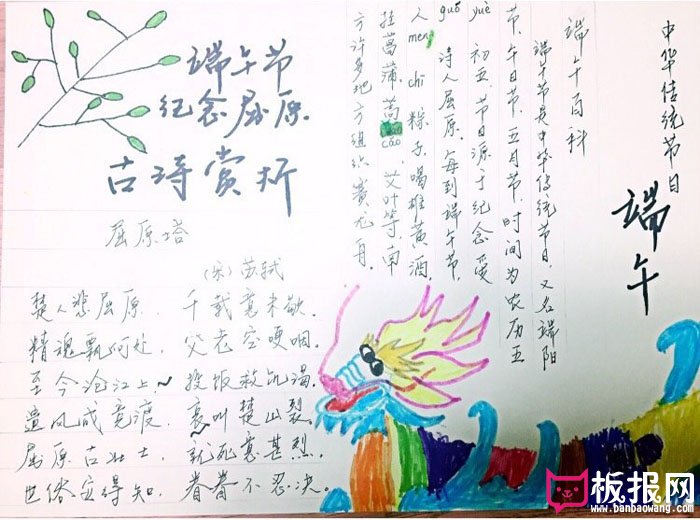 中华传统节日
端午
端午百科
端午节是中华传统节日，又名端阳
节、午日节、五月节，时间为农历五
yuè
初五，节日源于纪念爱
guó
诗人屈原。每到端午节，
人men chī粽子，喝雄黄酒，
挂菖蒲、蒿cǎo、艾叶等，中
方许多地方组织赛龙舟。
端午节
纪念屈原
古诗赏析
屈原塔
（宋）苏轼
楚人悲屈原，千载意未歇。
精魂飘何处，父老空哽咽。
至今沧江上，投饭救饥渴。
遗风成竞渡，哀叫楚山裂。
屈原古壮士，就死意甚烈。
世俗安得知，眷眷不忍决。
板报网
www.banbaowang.com